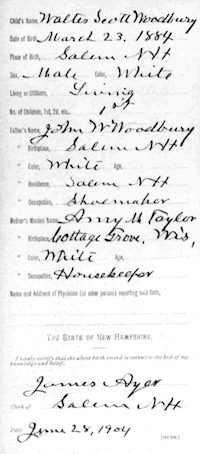 Child's Name, Walter Scott Woodbury
Date of Birth, March 23, 1884
Place of Birth, Salem NH
Sex, Male Color, White
Living or Stillborn, Living
No. of Children, 1st, 2d, etc., 1st
Father's Name, John W Woodbury
" Birthplace, Salem NH
" Color, White Age,
" Residence, Salem NH
" Occupation, Shoemaker
Mother's Maiden Name, Amy M Taylor
" Birthplace, Cottage Grove, Wis,
" Color, White Age,
" Occupation, Housekeeper
Name and Address of Physician (or other person) reporting said Birth,
THE STATE OF NEW HAMPSHIRE.
I hereby certify that the above birth record is correct to the best of my
knowledge and belief.
James Ayer
Clerk of Salem NH
Date June 28, 1904
[OVER]